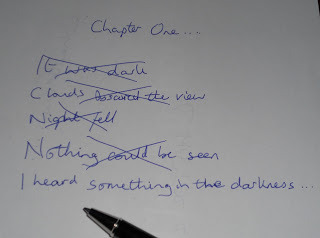 Chapter One....
It was dark
Clouds obscured the view
Night fell
Nothing could be seen
I heard something in the darkness...